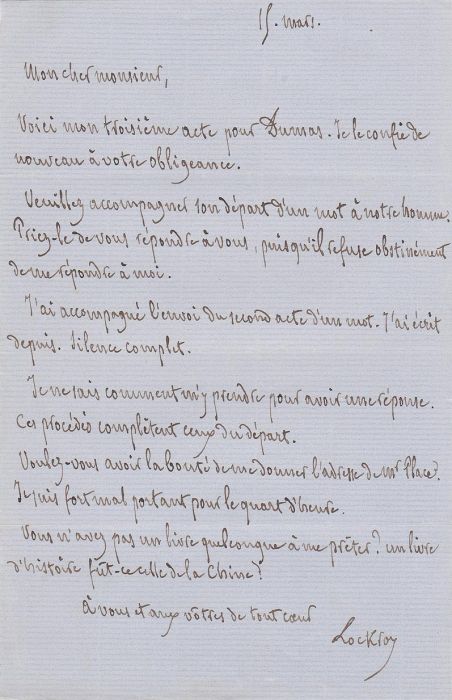 15. mars.
Mon cher monsieur,
Voici mon troisième acte pour Dumas. Je le confie de
nouveau à votre obligeance.
Veuillez accompagner son départ d'un mot à notre homme.
Priez-le de vous répondre à vous, puisqu'il refuse obstinément
de me répondre à moi.
J'ai accompagné l'envoi du second acte d'un mot. J'ai écrit
depuis. Silence complet.
Je ne sais comment m'y prendre pour avoir une réponse.
Ces procédés complètent ceux du départ.
Voulez-vous avoir la bonté de me donner l'adresse de Mr Place?
Je suis fort mal portant pour le quart d'heure.
Vous n'avez pas un livre quelconque à me prêter? un livre
d'histoire fût-ce celle de la Chine?
à vous et aux vôtres de tout cœur
Lockroy